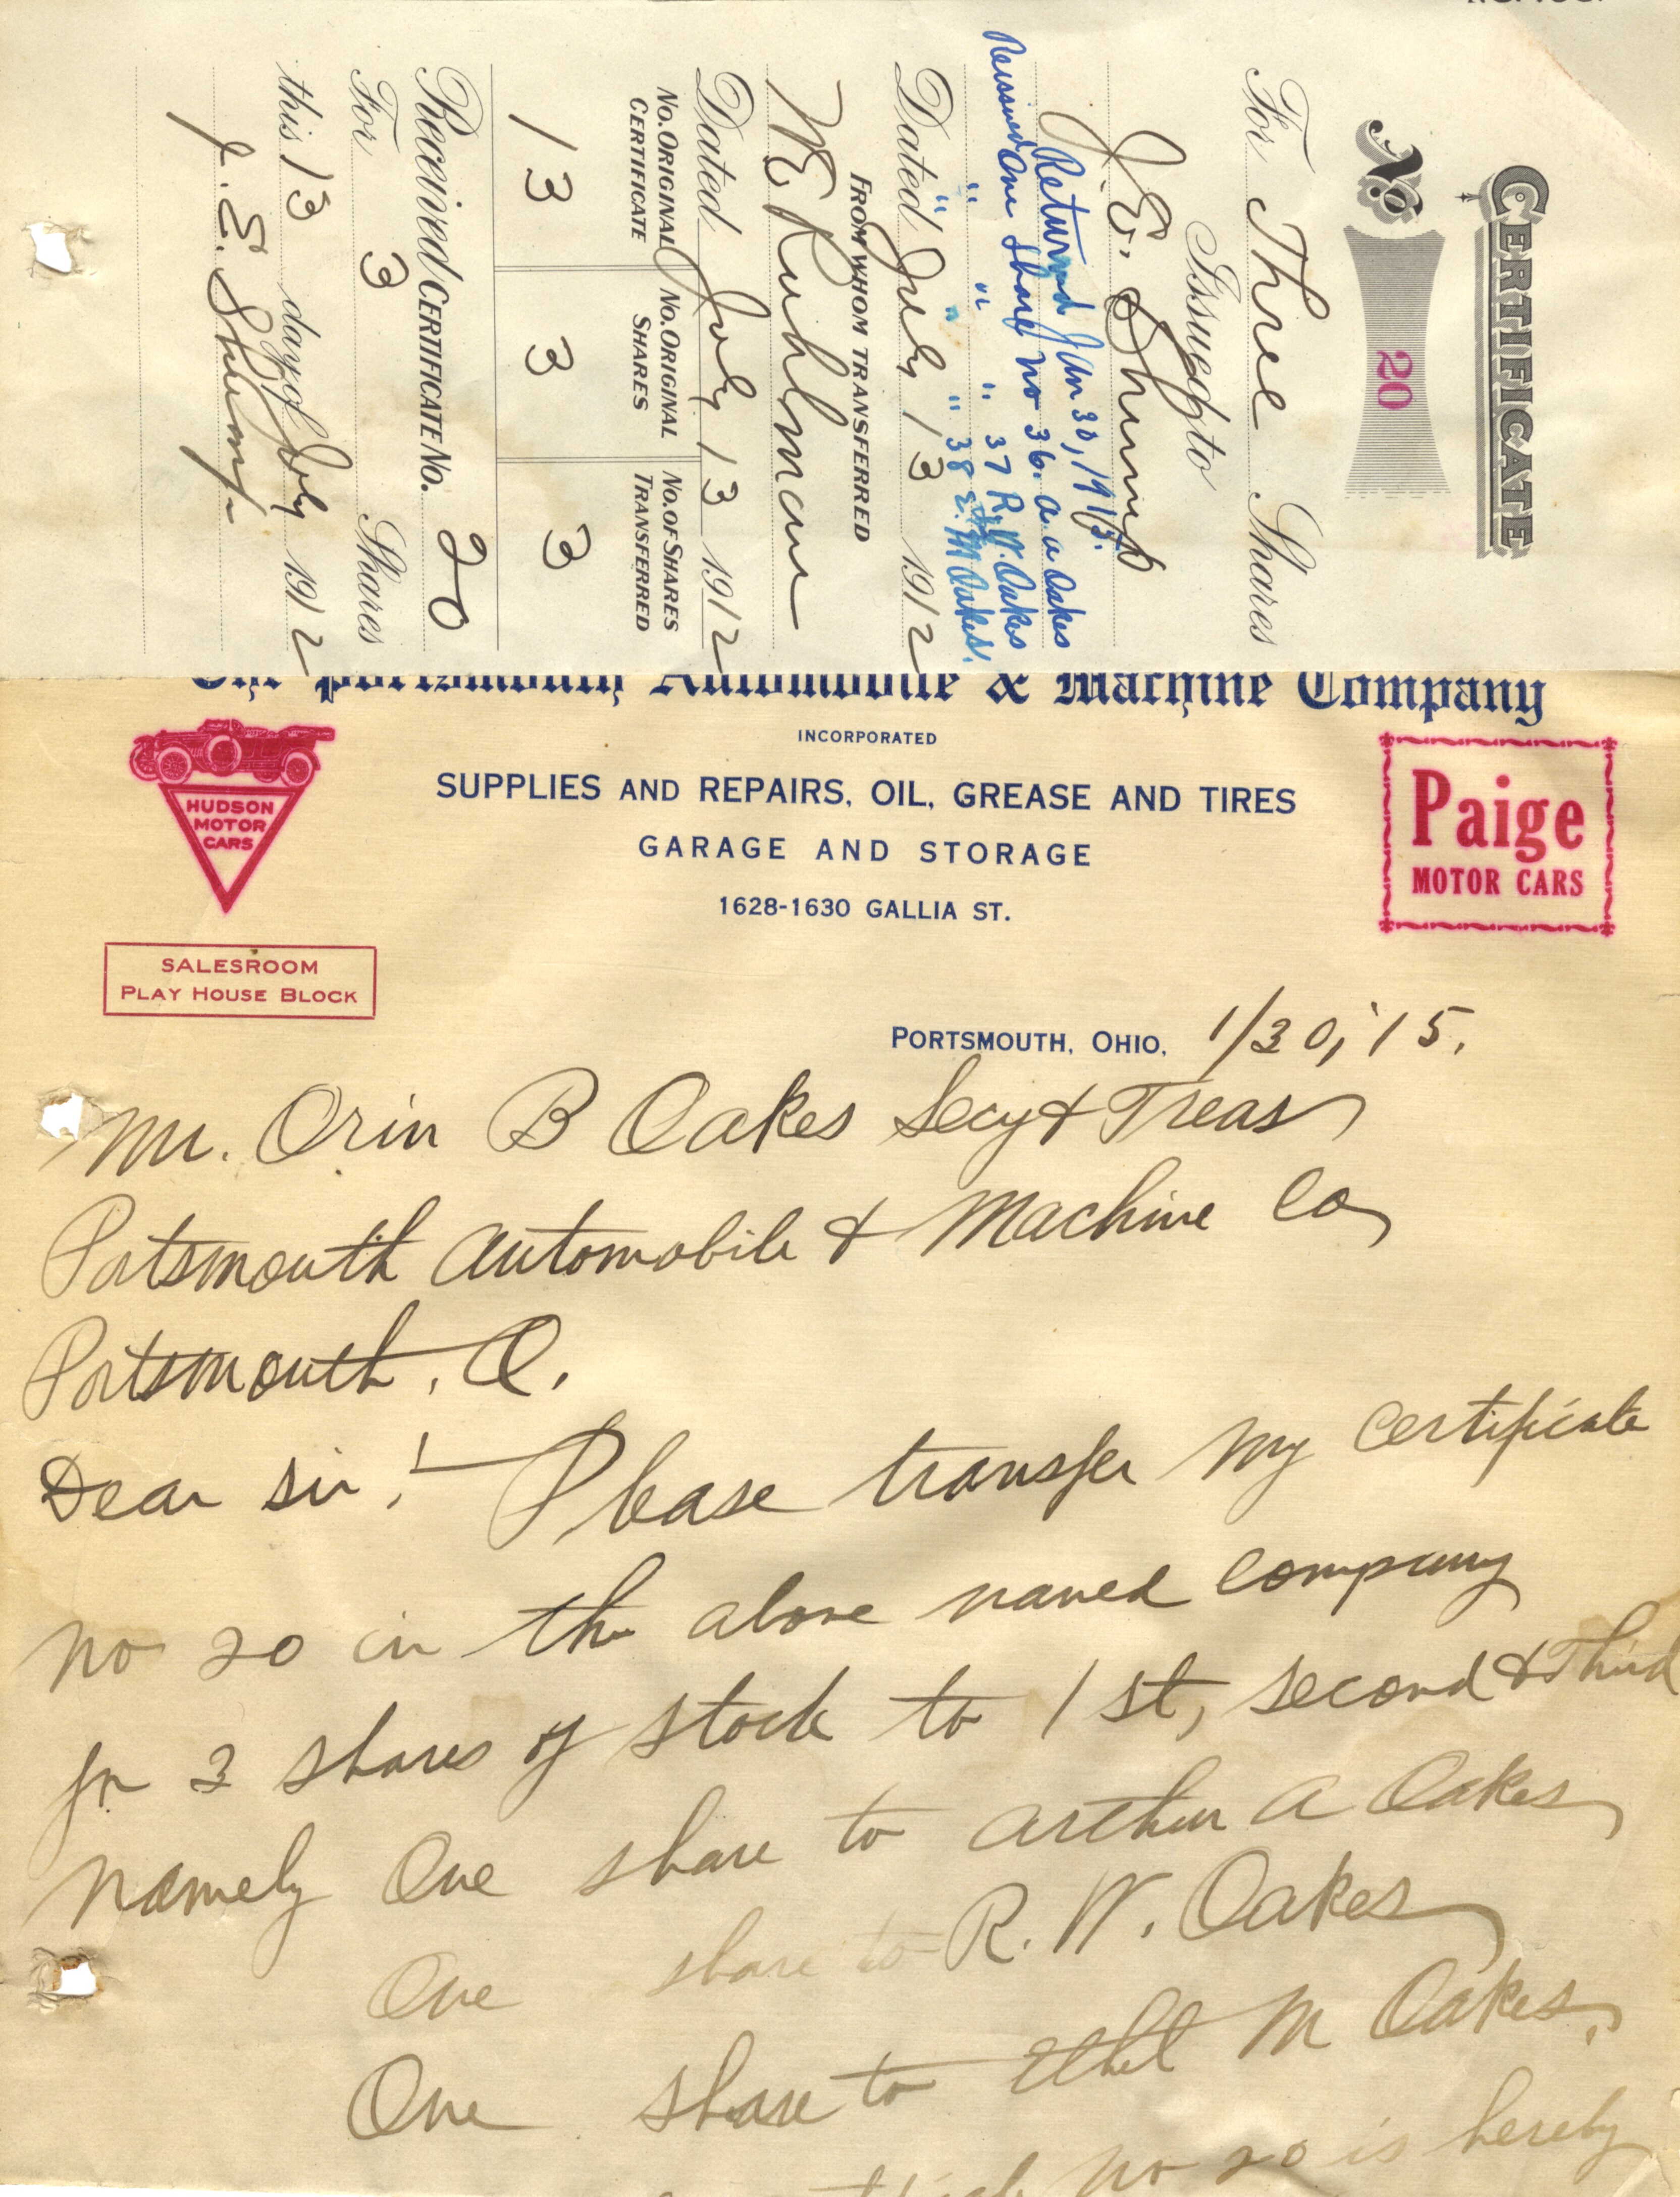 CERTIFICATE
No 20
For Three Shares
Issued to
J. E. Shump
Returned Jan 30, 1915.
Reissued One Share no 36. a. a Oakes
" " " 37 R. W. Oakes
" " " 38 E. M Oakes.
Dated July 13 1912
FROM WHOM TRANSFERRED
Dated July 13 1912
No. ORIGINAL CERTIFICATE
No. ORIGINAL SHARES
No. OF SHARES TRANSFERRED
13 3 3
Received CERTIFICATE No. 20
For 3 Shares
this 13 day of July 1912
J. E. Shump
The Portsmouth Automobile & Machine Company
INCORPORATED
SUPPLIES AND REPAIRS, OIL, GREASE AND TIRES
GARAGE AND STORAGE
1628-1630 GALLIA ST.
HUDSON
MOTOR
CARS
Paige
MOTOR CARS
SALESROOM
PLAY HOUSE BLOCK
PORTSMOUTH, OHIO, 1/30, '15.
Mr. Orin B Oakes Secy & Treas
Portsmouth Automobile & Machine Co
Portsmouth, O.
Dear sir! Please transfer my certificate
no 20 in the above named company
for 3 shares of stock to 1st, second & Third
namely One share to Arthur A Oakes
One share to R. W. Oakes
One share to Ethel M Oakes.
no 20 is hereby